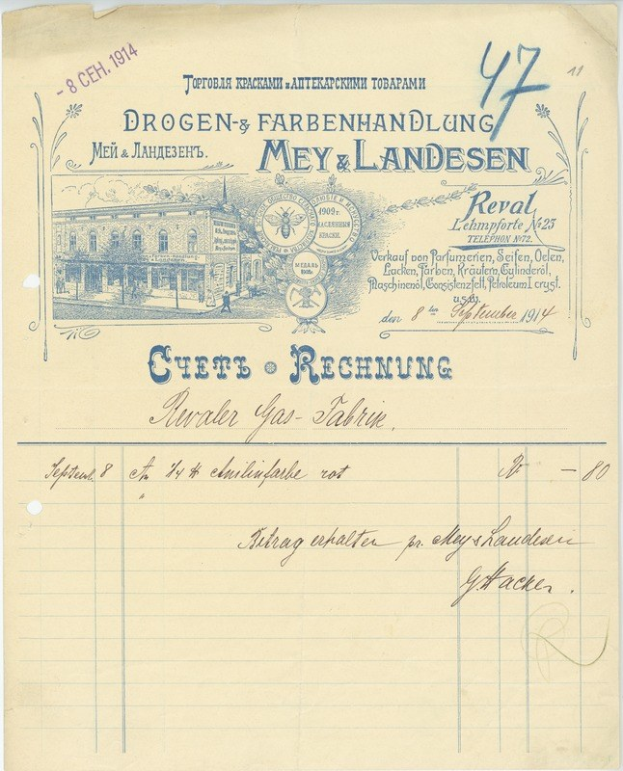 - 8 СЕН. 1914
47
11
Торговля красками и аптекарскими товарами
Drogen- & Farbenhandlung
Мей & Ландезенъ.
Mey & Landesen
1909 г.
Reval
Lehmpforte № 23
Telephon № 72.
Verkauf von Parfumerien, Seifen, Oelen,
Lacken, Farben, Kräutern, Cylinderöl,
Maschinenöl, Consistenzfett, Petroleum I cryst.
u.s.w.
den 8 ten September 1914
Счетъ Rechnung
Revaler Gas-Fabrik.
Septemb. 8 An 1/4 ℔ Anilinfarbe rot — 80
Betrag erhalten pr. Mey & Landesen
G. Hacker.